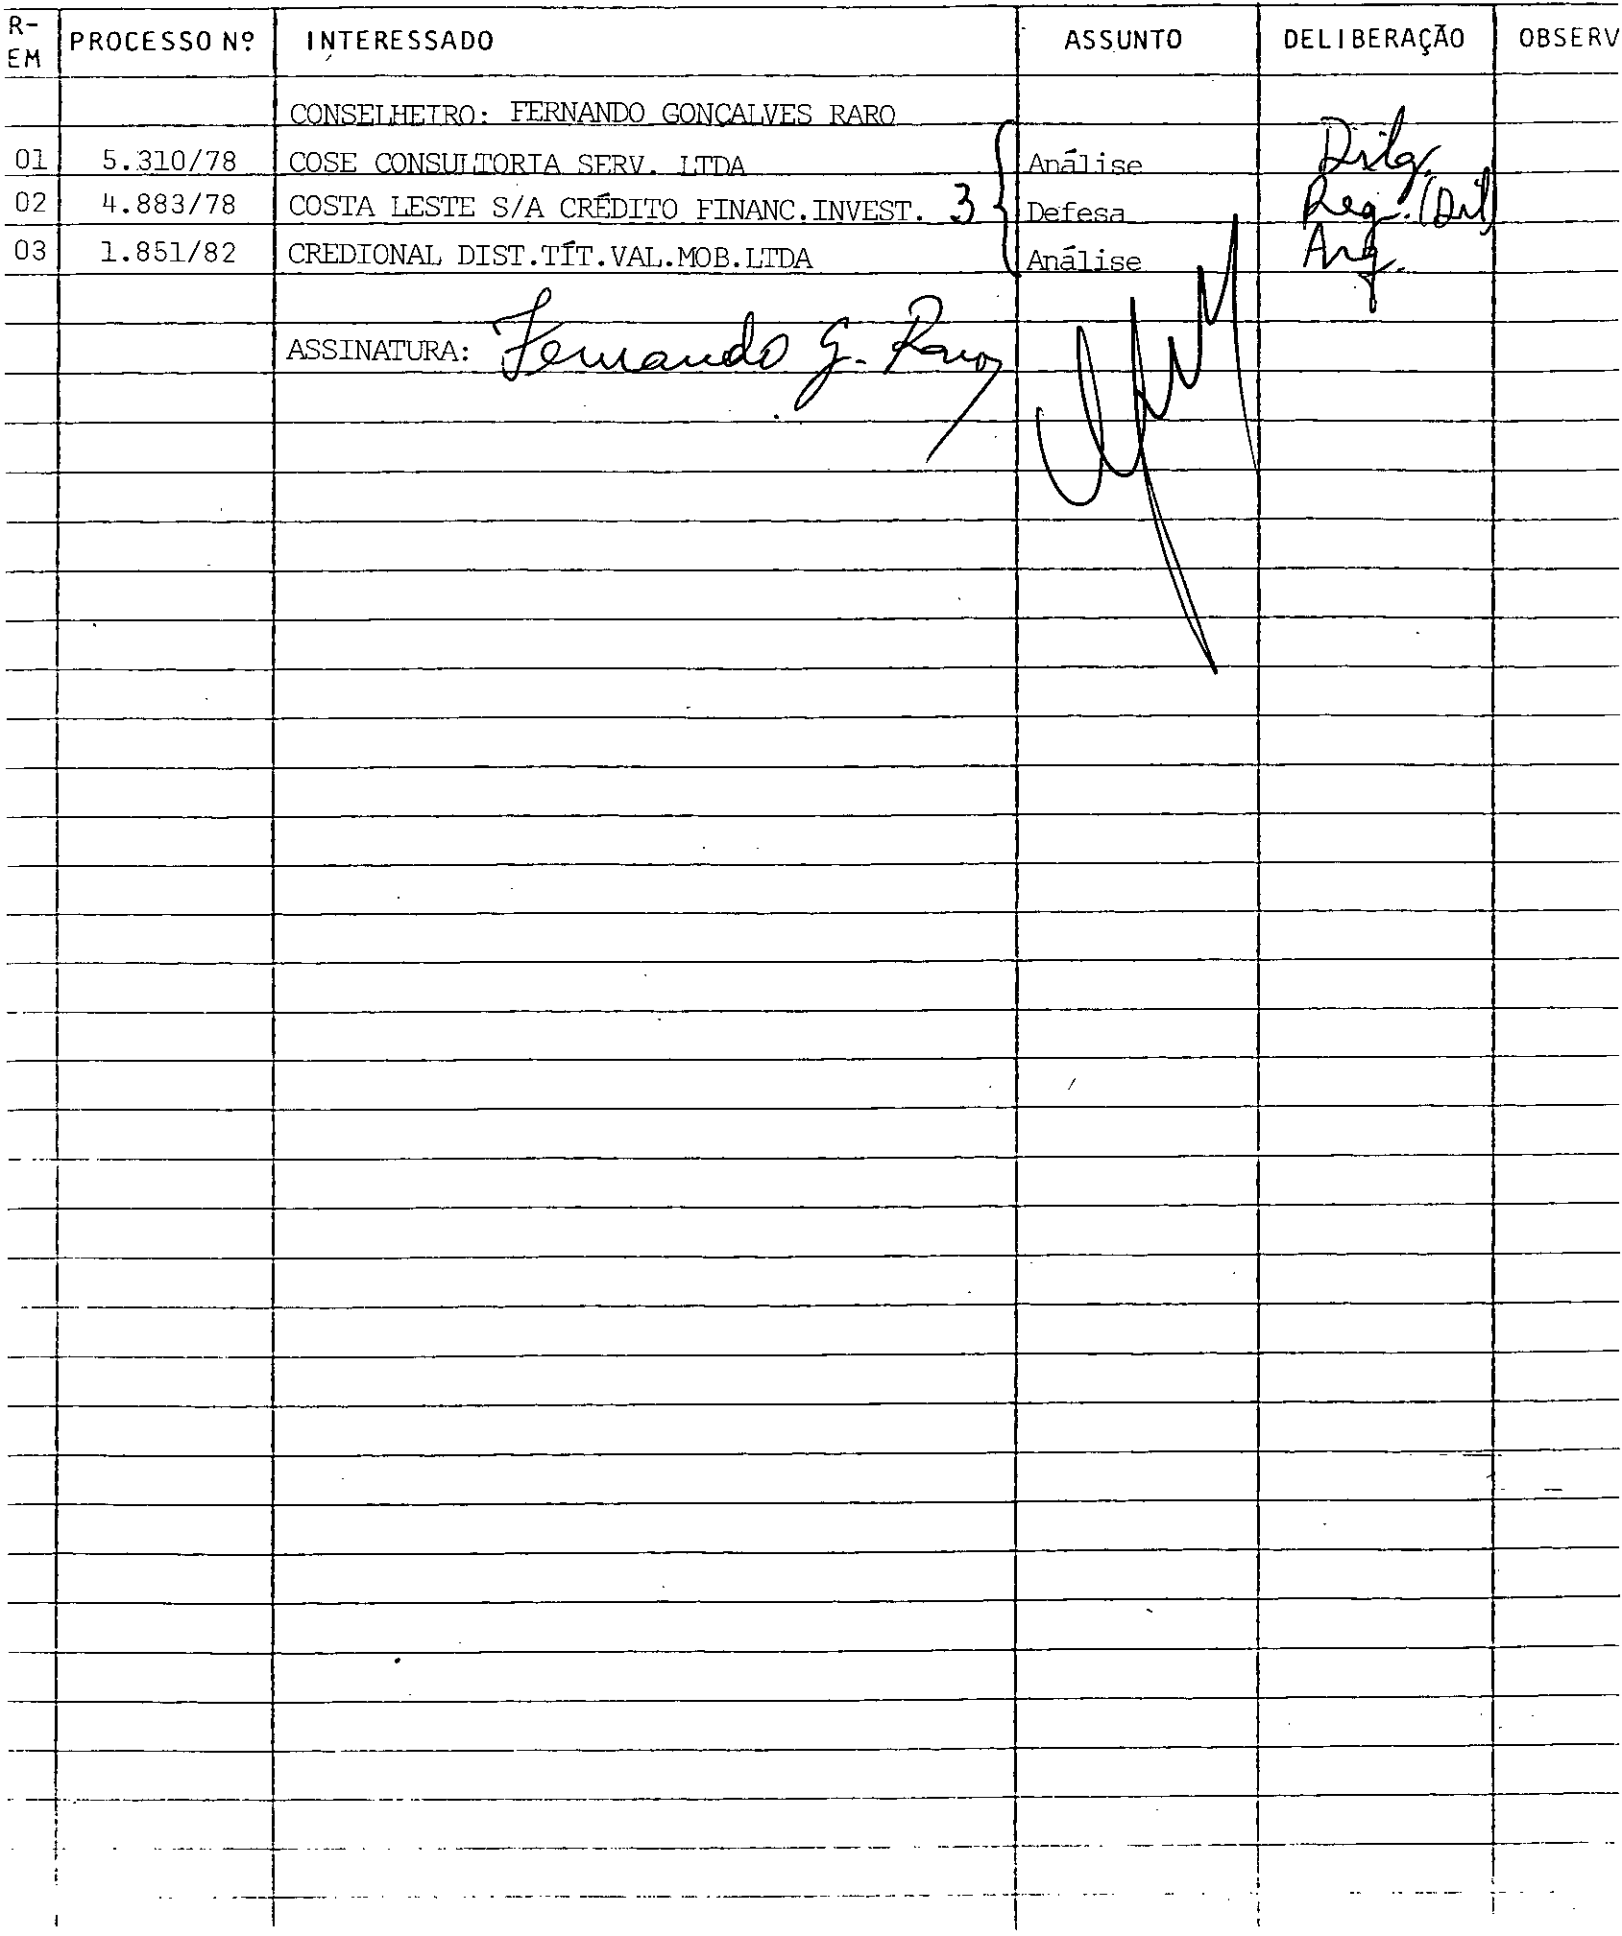 R-
EM PROCESSO Nº INTERESSADO ASSUNTO DELIBERAÇÃO OBSERV
CONSELHEIRO: FERNANDO GONÇALVES RARO
01 5.310/78 COSE CONSULTORIA SERV. LTDA Análise Dilg.
02 4.883/78 COSTA LESTE S/A CRÉDITO FINANC.INVEST. 3 Defesa Reg. (Dil)
03 1.851/82 CREDIONAL DIST.TÍT.VAL.MOB.LTDA Análise Arq.
ASSINATURA: Fernando G. Raro